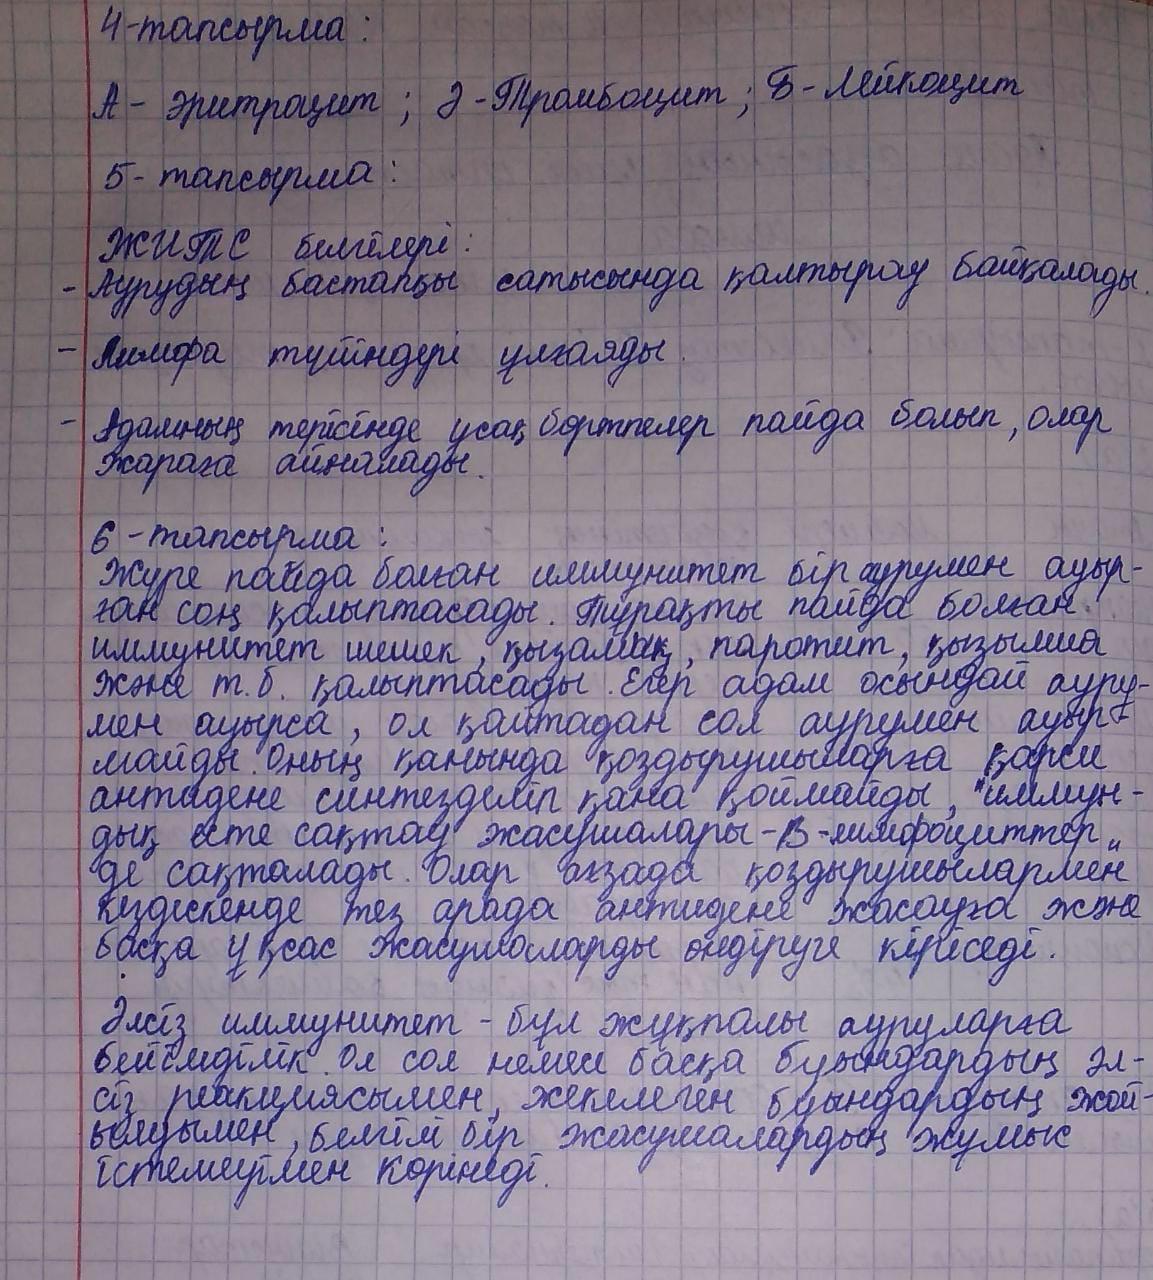 4-тапсырма:
А - эритроцит; Ә - Тромбоцит; Б - Лейкоцит
5- тапсырма:
ЖИТС белгілері:
- Аурудың бастапқы сатысында қалтырау байқалады.
- Лимфа түйіндері ұлғаяды.
- Адамның терісінде ұсақ бөртпелер пайда болып, олар
жараға айналады.
6 - тапсырма:
Жүре пайда болған иммунитет бір аурумен ауыр-
ған соң қалыптасады. Тұрақты пайда болған
иммунитет шешек, қызамық, паротит, қызылша
және т.б. қалыптасады. Егер адам осындай ауру-
мен ауырса, ол қайтадан сол аурумен ауыр-
майды. Оның қанында қоздырушыларға қарсы
антидене синтезделіп қана қоймайды, "иммун-
дық есте сақтау жасушалары - В - лимфоциттер„
де сақталады. Олар ағзада қоздырушылармен
кездескенде тез арада антидене жасауға және
басқа ұқсас жасушаларды өндіруге кіріседі.
Әлсіз иммунитет - бұл жұқпалы ауруларға
бейімділік. Ол сол немесе басқа буындардың әл-
сіз реакциясымен, жекелеген буындардың жой-
ылуымен, белгілі бір жасушалардың жұмыс
істемеуімен көрінеді.